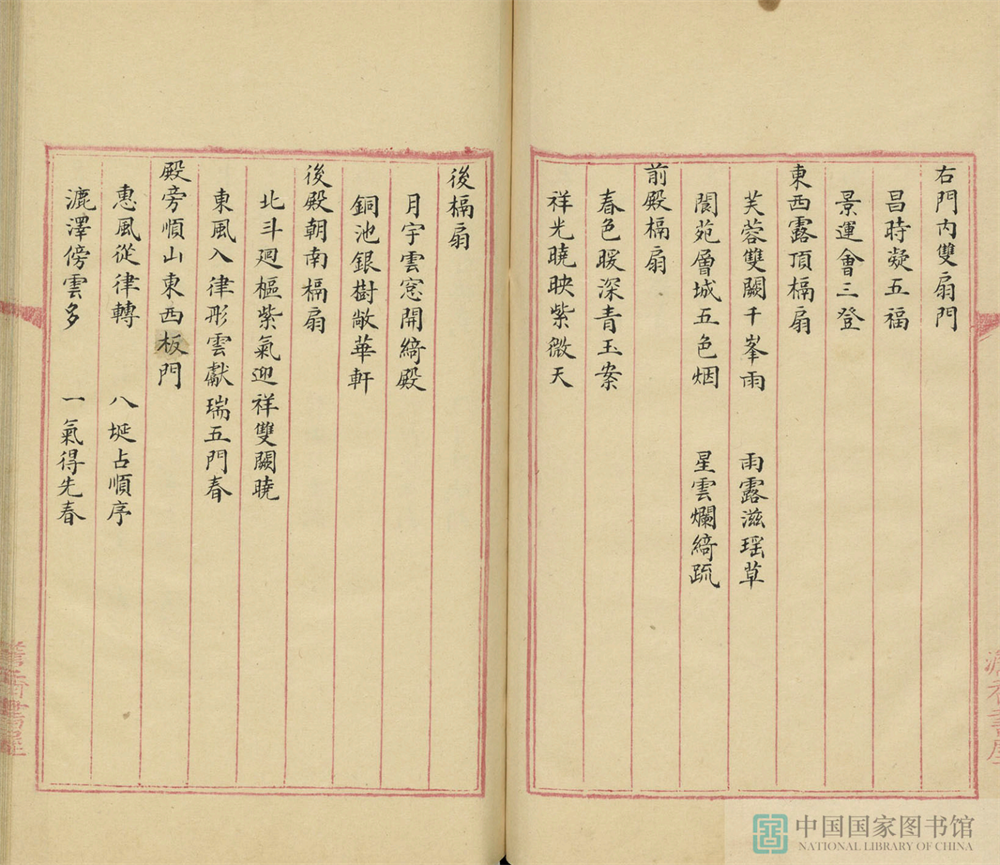 右門內雙扇門
昌時凝五福
景運會三登
東西露頂槅扇
芙蓉雙闕千峯雨　雨露滋瑶草
閬苑層城五色烟　星雲爛綺疏
前殿槅扇
春色暖深青玉案
祥光曉映紫微天
後槅扇
月宇雲窓開綺殿
銅池銀樹敞華軒
後殿朝南槅扇
北斗迴樞紫氣迎祥雙闕曉
東風入律彤雲獻瑞五門春
殿旁順山東西板門
惠風從律轉　八埏占順序
漉澤傍雲多　一氣得先春
中国国家图书馆
NATIONAL LIBRARY OF CHINA